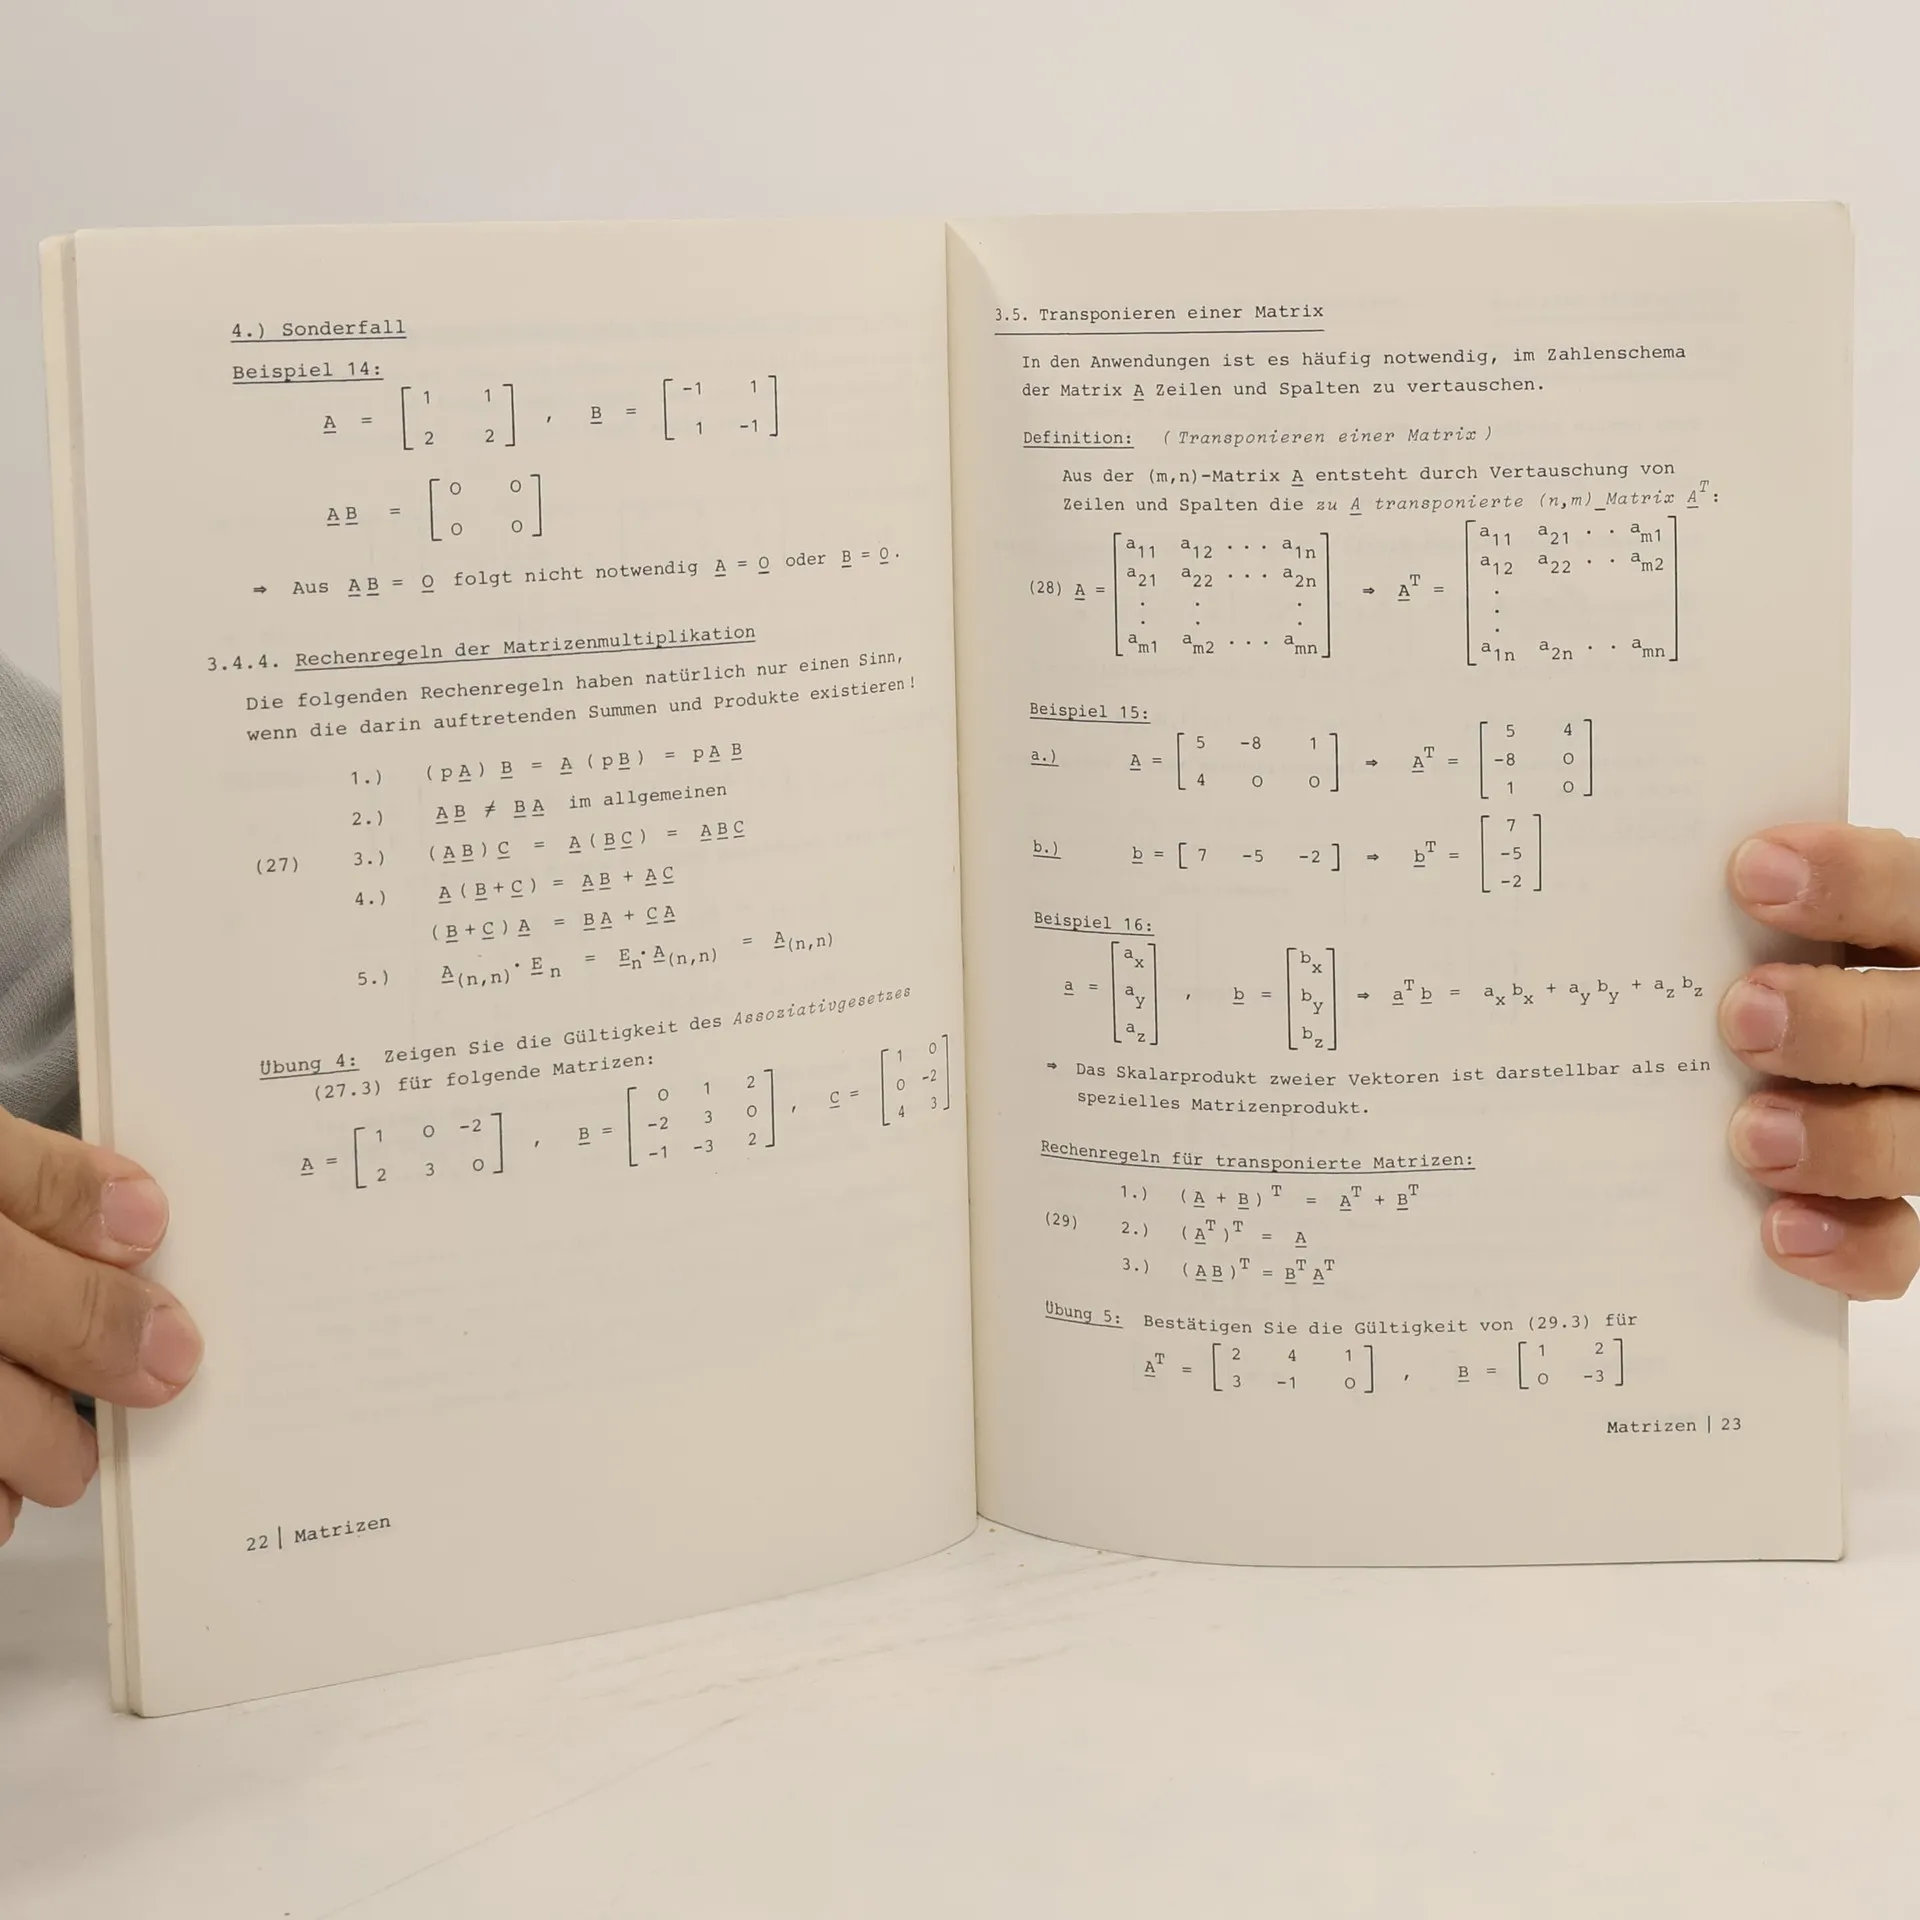 4.) Sonderfall
Beispiel 14:
A = [ 1 1 ; 2 2 ] , B = [ -1 1 ; 1 -1 ]
A B = [ 0 0 ; 0 0 ]
⇒ Aus A B = 0 folgt nicht notwendig A = 0 oder B = 0.
3.4.4. Rechenregeln der Matrizenmultiplikation
Die folgenden Rechenregeln haben natürlich nur einen Sinn,
wenn die darin auftretenden Summen und Produkte existieren!
1.) (pA) B = A (pB) = pA B
2.) AB ≠ BA im allgemeinen
(27) 3.) (AB) C = A (BC) = ABC
4.) A (B+C) = AB + AC
(B+C) A = BA + CA
5.) A(n,n) · En = En · A(n,n) = A(n,n)
Übung 4: Zeigen Sie die Gültigkeit des Assoziativgesetzes
(27.3) für folgende Matrizen:
A = [ 1 0 -2 ; 2 3 0 ] , B = [ 0 1 2 ; -2 3 0 ; -1 -3 2 ] , C = [ 1 0 ; 0 -2 ; 4 3 ]
22 | Matrizen
3.5. Transponieren einer Matrix
In den Anwendungen ist es häufig notwendig, im Zahlenschema
der Matrix A Zeilen und Spalten zu vertauschen.
Definition: (Transponieren einer Matrix)
Aus der (m,n)-Matrix A entsteht durch Vertauschung von
Zeilen und Spalten die zu A transponierte (n,m)_Matrix A^T:
(28) A = [ a11 a12 · · · a1n ; a21 a22 · · · a2n ; · · · ; am1 am2 · · · amn ] ⇒ A^T = [ a11 a21 · · am1 ; a12 a22 · · am2 ; · · · ; a1n a2n · · amn ]
Beispiel 15:
a.) A = [ 5 -8 1 ; 4 0 0 ] ⇒ A^T = [ 5 4 ; -8 0 ; 1 0 ]
b.) b = [ 7 -5 -2 ] ⇒ b^T = [ 7 ; -5 ; -2 ]
Beispiel 16:
a = [ ax ; ay ; az ] , b = [ bx ; by ; bz ] ⇒ a^T b = ax bx + ay by + az bz
⇒ Das Skalarprodukt zweier Vektoren ist darstellbar als ein
spezielles Matrizenprodukt.
Rechenregeln für transponierte Matrizen:
1.) (A + B)^T = A^T + B^T
(29) 2.) (A^T)^T = A
3.) (AB)^T = B^T A^T
Übung 5: Bestätigen Sie die Gültigkeit von (29.3) für
A^T = [ 2 4 1 ; 3 -1 0 ] , B = [ 1 2 ; 0 -3 ]
Matrizen | 23